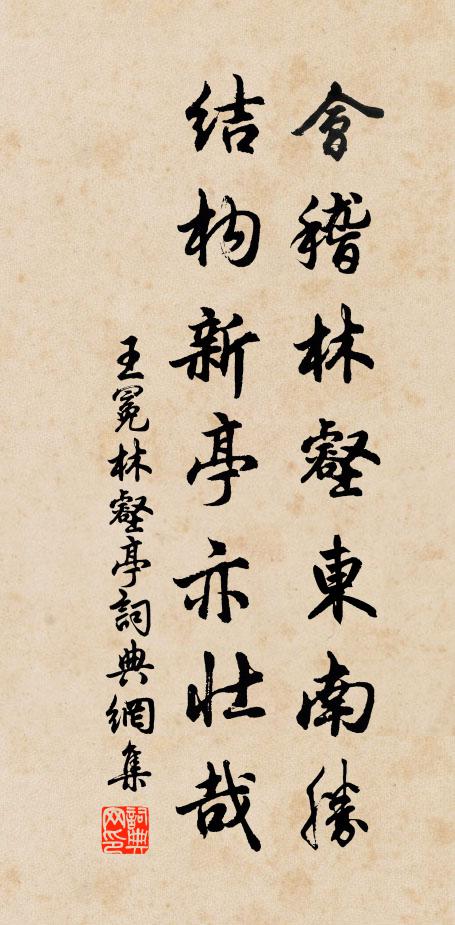 會稽林壑東南勝
結构新亭亦壯哉
王冕林壑亭詞典網集
詞典网印